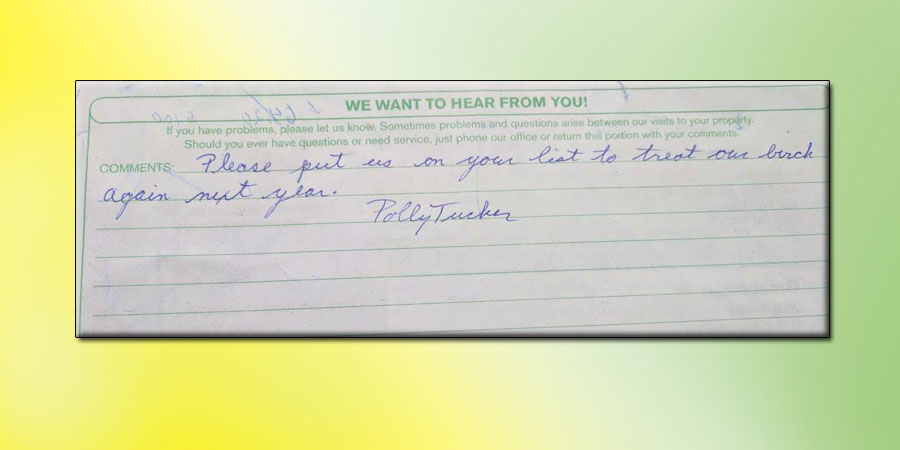 WE WANT TO HEAR FROM YOU!
If you have problems, please let us know. Sometimes problems and questions arise between our visits to your property.
Should you ever have questions or need service, just phone our office or return this portion with your comments.
COMMENTS: Please put us on your list to treat our birch
again next year.
Polly Tucker